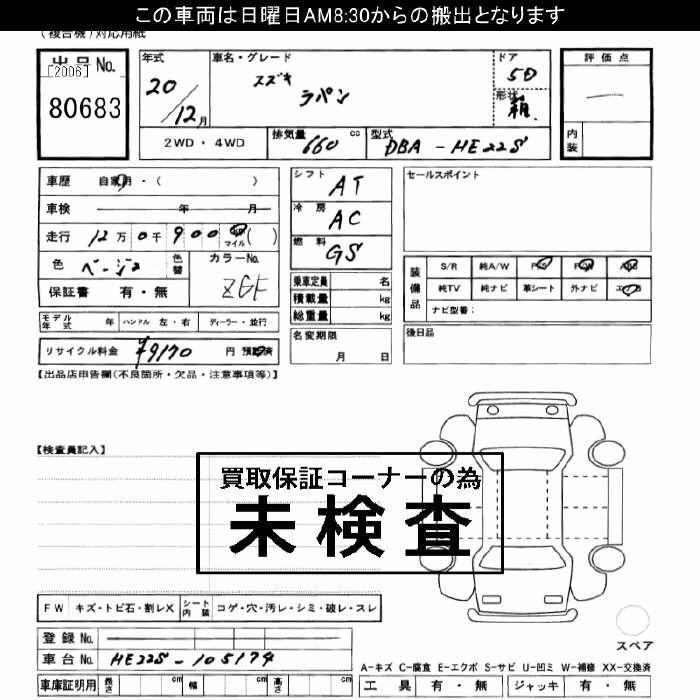 この車両は日曜日AM8:30からの搬出となります
(複合機)対応用紙
出品No.
[2006]
80683
年式
20
12月
車名・グレード
スズキ
ラパン
ドア
5D
形状
箱
評価点
内装
2WD・4WD
排気量 660 cc
型式 DBA-HE22S
車歴 自家用・( )
車検 年 月
走行 12万0千900 km マイル ( )
色 ベージュ 色替
カラーNo. ZGF
保証書 有・無
シフト AT
冷房 AC
燃料 GS
乗車定員 名
積載量 kg
総重量 kg
名変期限
月 日
セールスポイント
装備品
S/R 純A/W P/S P/W ABS
純TV 純ナビ 革シート 外ナビ エアB
ナビ型番:
後日品
モデル年式 年 ハンドル 左・右 ディーラー・並行
リサイクル料金 ¥9170 円 預託済
【出品店申告欄(不良箇所・欠品・注意事項等)】
【検査員記入】
買取保証コーナーの為
未検査
FW キズ・トビ石・割レX シート内装 コゲ・穴・汚レ・シミ・破レ・スレ
登録No.
車台No. HE22S-105174
車庫証明用 長さ cm 幅 cm 高さ cm
スペア
A-キズ C-腐食 E-エクボ S-サビ U-凹ミ W-補修 XX-交換済
工具 有・無 ジャッキ 有・無